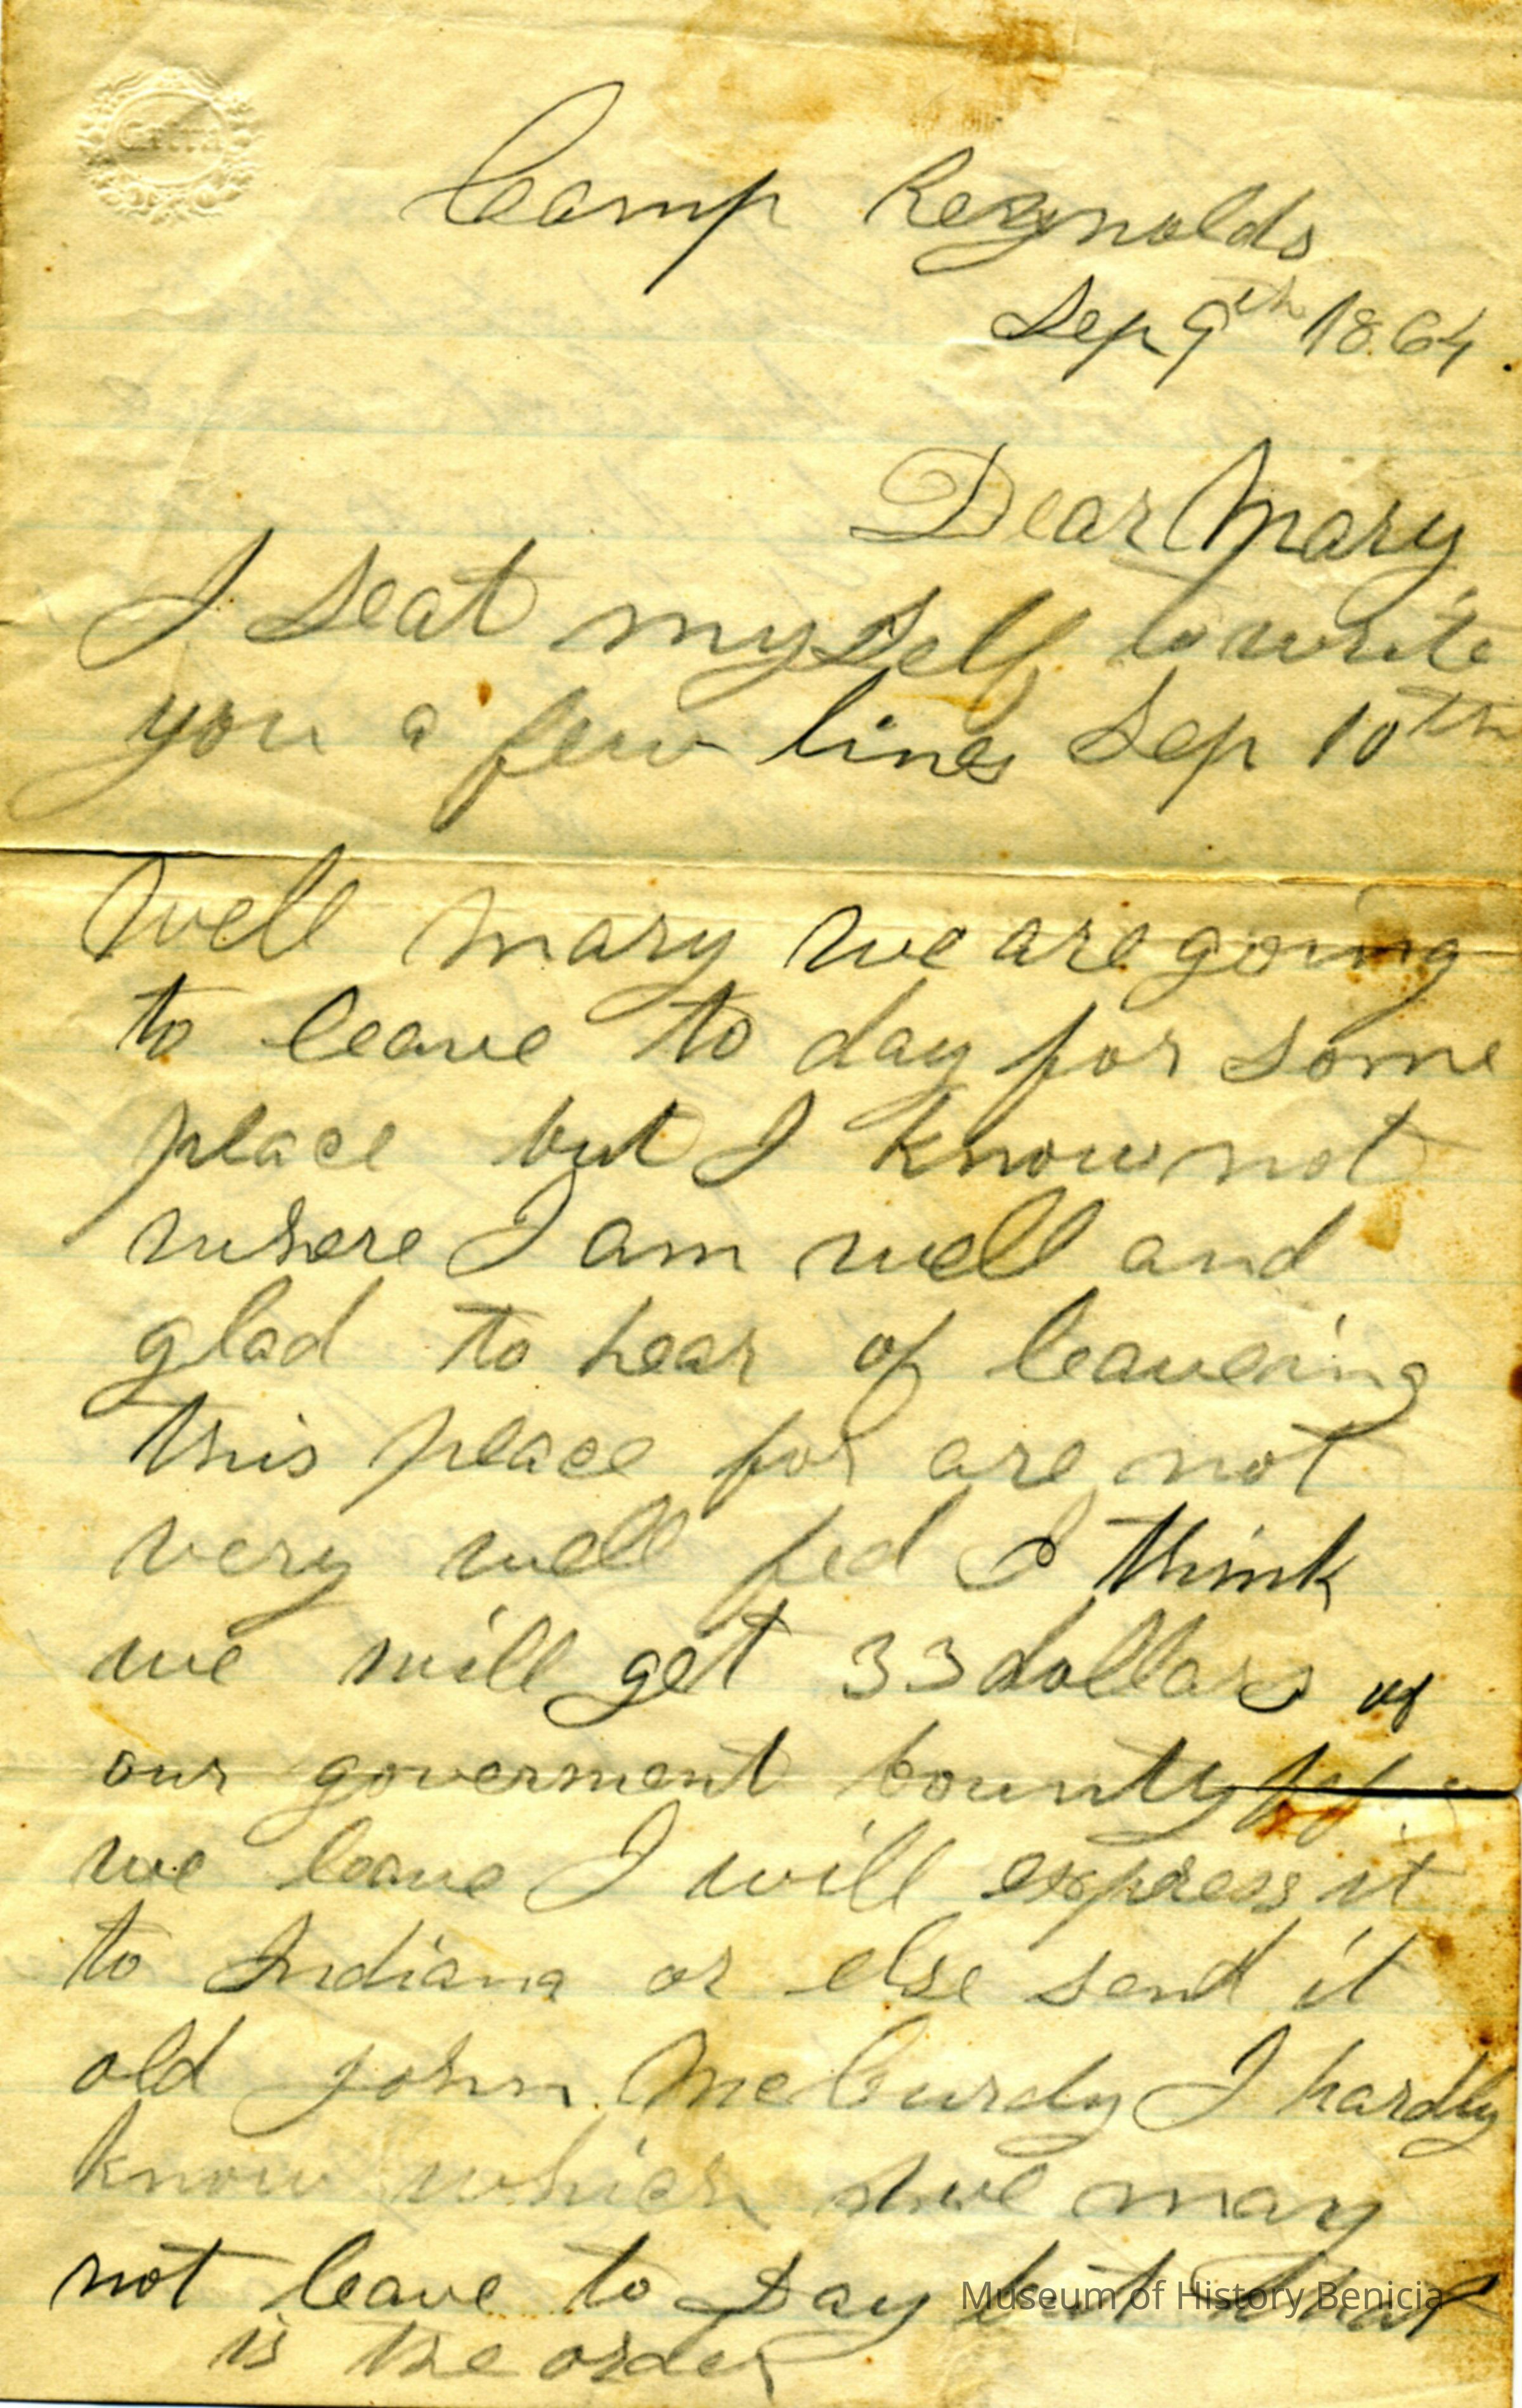 Camp Reynolds
Sep 9th 1864.
Dear Mary
I seat myself to write
you a few lines Sep 10th
Well mary we are going
to leave to day for some
place but I know not
where I am well and
glad to hear of leaveing
this place for are not
very well fed I think
we will get 33 dollars of
our goverment bounty
we leave I will express it
to Indiana or else send it
old john McCurdy I hardly
know which we may
not leave to day but that
is the order
Museum of History Benicia